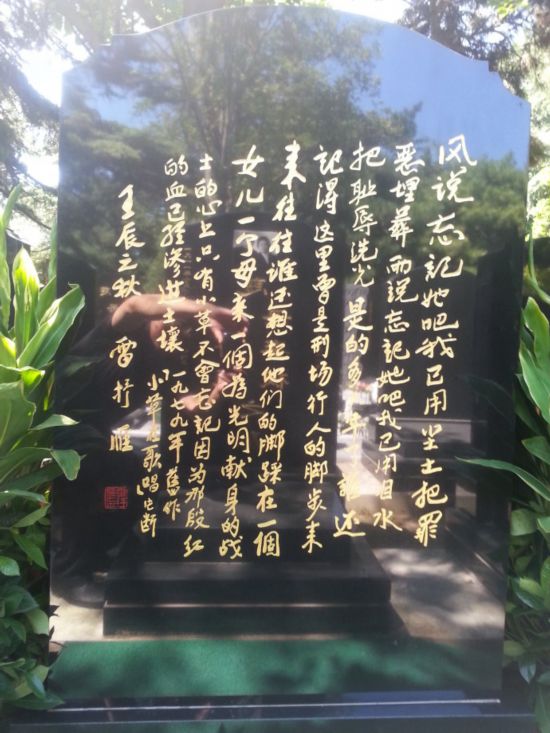 风说忘记她吧我已用尘土把罪
恶埋葬雨说忘记她吧我已用泪水
把耻辱洗光是的多少年了谁还
记得这里曾是刑场行人的脚步来
来往往谁还想起他们的脚踩在一個
女儿一个母亲一個为光明献身的战
士的心上只有小草不會忘记因为那殷红
的血已经渗进土壤 一九七九年舊作
「小草在歌唱」片断
壬辰之秋 雷抒雁